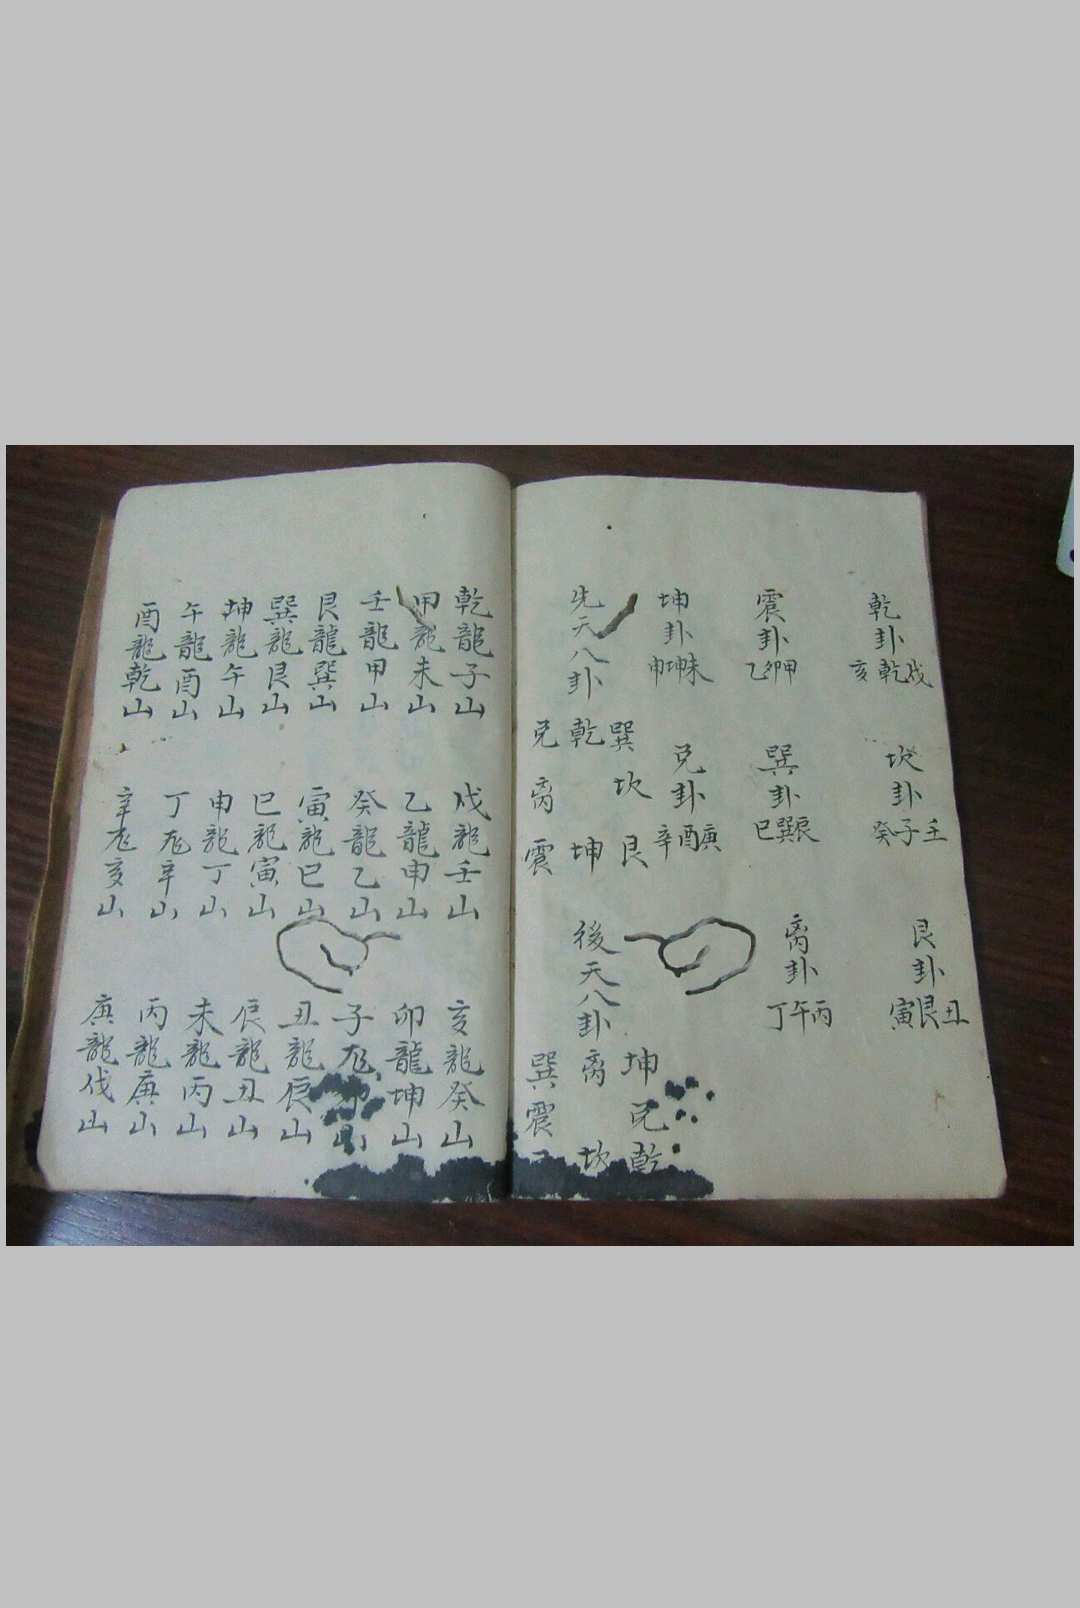 乾卦
戌乾亥
坎卦
壬子癸
艮卦
丑艮寅
震卦
甲卯乙
巽卦
辰巽巳
离卦
丙午丁
坤卦
未坤申
兑卦
庚酉辛
先天八卦
兑乾巽
离 坎
震坤艮
後天八卦
巽离坤
震 兑
坎乾
乾龍子山
戌龍壬山
亥龍癸山
甲龍未山
乙龍申山
卯龍坤山
壬龍甲山
癸龍乙山
子龙山
艮龍巽山
寅龍巳山
丑龍辰山
巽龍艮山
巳龍寅山
辰龍丑山
坤龍午山
申龍丁山
未龍丙山
午龍酉山
丁龙辛山
丙龍庚山
酉龍乾山
辛龙亥山
庚龍伐山